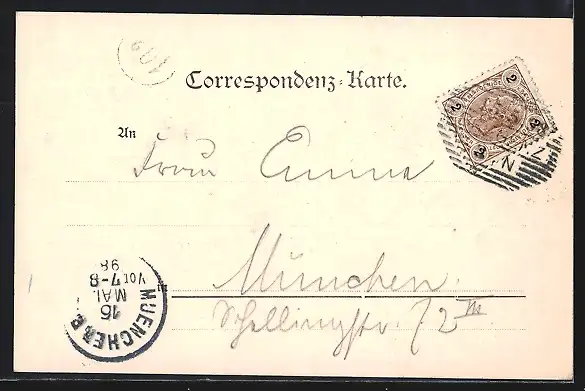 Correspondenz-Karte.
An
Frau Emma
München.
Schellingstr. 72 III
MUENCHEN.B.B.
16
MAI.
VOR.7-8
98
2
2
2